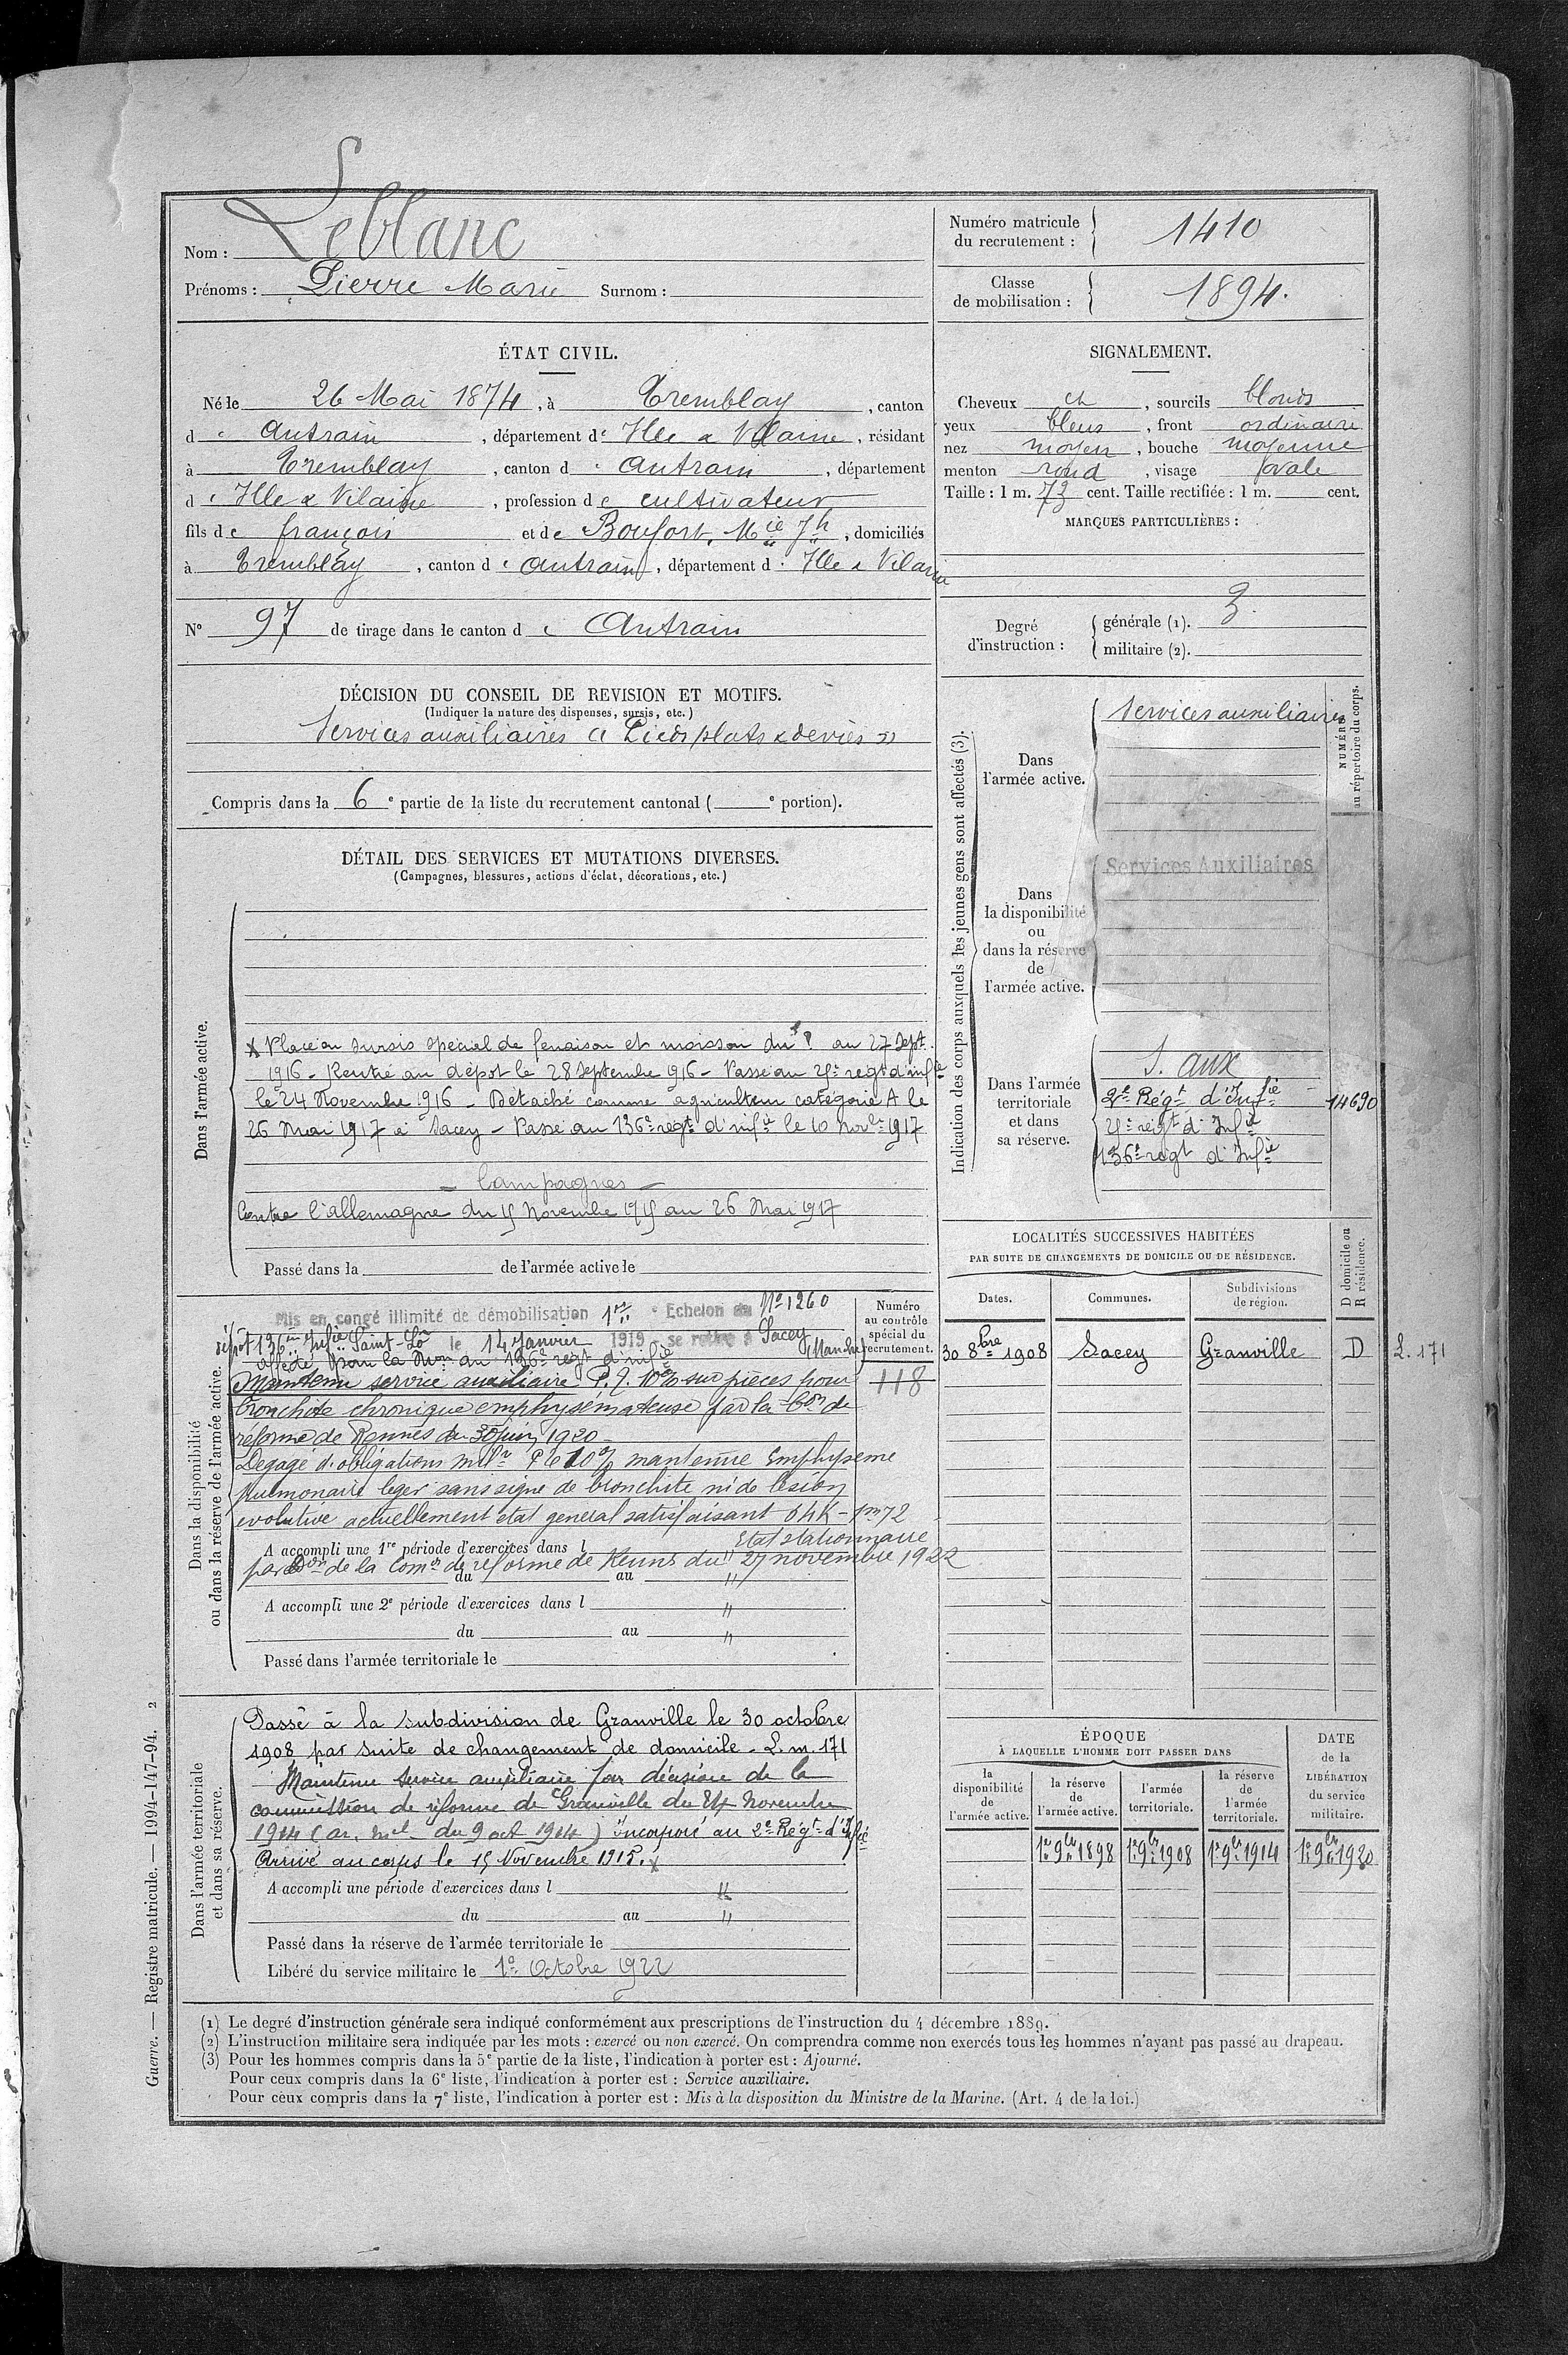 Leblanc
Nom :
Prénoms : Pierre Marie Surnom :
Numéro matricule du recrutement : 1410
Classe de mobilisation : 1894.
ÉTAT CIVIL.
Né le 26 Mai 1874, à Tremblay, canton
d'Antrain, département d'Ille & Vilaine, résidant
à Tremblay, canton d'Antrain, département
d'Ille & Vilaine, profession de cultivateur
fils de françois et de Boufort, Mie Jh, domiciliés
à Tremblay, canton d'Antrain, département d'Ille & Vilaine
No 97 de tirage dans le canton d'Antrain
SIGNALEMENT.
Cheveux ch, sourcils blonds
yeux bleus, front ordinaire
nez moyen, bouche moyenne
menton rond, visage ovale
Taille : 1 m. 73 cent. Taille rectifiée : 1 m. cent.
MARQUES PARTICULIÈRES :
Degré d'instruction : générale (1). 3.
militaire (2).
DÉCISION DU CONSEIL DE REVISION ET MOTIFS.
(Indiquer la nature des dispenses, sursis, etc.)
Services auxiliaires « Pieds plats & deviés »
Compris dans la 6e partie de la liste du recrutement cantonal (e portion).
DÉTAIL DES SERVICES ET MUTATIONS DIVERSES.
(Campagnes, blessures, actions d'éclat, décorations, etc.)
Dans l'armée active.
X Place en sursis spécial de fenaison et moisson du au 27 Sept.
1916 - Rentré au dépôt le 28 Septembre 916 - Passé au 25e regt d'infie
le 24 Novembre 1916 - Détaché comme agriculteur catégorie A le
26 Mai 1917 à Sacey - Passé au 136e regt d'infie le 10 Novbre 1917
- Campagnes -
Contre l'allemagne du 15 Novembre 1915 au 26 Mai 1917
Passé dans la de l'armée active le
Indication des corps auxquels les jeunes gens sont affectés (3).
NUMÉRO au répertoire du corps.
Dans l'armée active.
Services auxiliaires
Dans la disponibilité ou dans la réserve de l'armée active.
Services Auxiliaires
Dans l'armée territoriale et dans sa réserve.
S. aux
2e Régt d'Infie 14690
25e regt d'Infie
136e regt d'Infie
LOCALITÉS SUCCESSIVES HABITÉES
PAR SUITE DE CHANGEMENTS DE DOMICILE OU DE RÉSIDENCE.
Dates. Communes. Subdivisions de région. D domicile ou R résidence.
30 8bre 1908 Sacey Granville D L. 171
Dans la disponibilité ou dans la réserve de l'armée active.
Numéro au contrôle spécial du recrutement.
118
Mis en congé illimité de démobilisation 1er Echelon No 1260
dépôt 136me Infie Saint-Lô le 14 Janvier 1919 se retire à Sacey (Manche)
affecté pour la Mon au 136e regt d'infie
Maintenu service auxiliaire P.I. 10% sur pièces pour
bronchite chronique emphysémateuse par la Con de
réforme de Rennes du 30 Juin 1920 -
Degagé d'obligations milres 10% maintenue Emphyseme
pulmonaire leger sans signe de bronchite ni de lésion
evolutive actuellement etat general satisfaisant 64K - 1m72
Etat stationnaire
A accompli une 1re période d'exercices dans l
par don de la Comon de reforme de Rennes du 27 novembre 1922
du au
A accompli une 2e période d'exercices dans l "
du au "
Passé dans l'armée territoriale le
Dans l'armée territoriale et dans sa réserve.
Passé à la subdivision de Granville le 30 octobre
1908 par suite de changement de domicile - L. m. 171
Maintenu Service auxiliaire par décision de la
commission de réforme de Granville du 24 Novembre
1914 (ar. mel du 9 oct 1914) incorporé au 2e Régt d'Infie
Arrivé au corps le 15 Novembre 1915. X
A accompli une période d'exercices dans l "
du au "
Passé dans la réserve de l'armée territoriale le
Libéré du service militaire le 1er Octobre 1922
ÉPOQUE
À LAQUELLE L'HOMME DOIT PASSER DANS
la disponibilité de l'armée active. la réserve de l'armée active. l'armée territoriale. la réserve de l'armée territoriale.
DATE de la LIBÉRATION du service militaire.
1er 9bre 1898 1er 9bre 1908 1er 9bre 1914 1er 9bre 1920
(1) Le degré d'instruction générale sera indiqué conformément aux prescriptions de l'instruction du 4 décembre 1889.
(2) L'instruction militaire sera indiquée par les mots : exercé ou non exercé. On comprendra comme non exercés tous les hommes n'ayant pas passé au drapeau.
(3) Pour les hommes compris dans la 5e partie de la liste, l'indication à porter est : Ajourné.
Pour ceux compris dans la 6e liste, l'indication à porter est : Service auxiliaire.
Pour ceux compris dans la 7e liste, l'indication à porter est : Mis à la disposition du Ministre de la Marine. (Art. 4 de la loi.)
Guerre. — Registre matricule. — 1994-147-94. 2